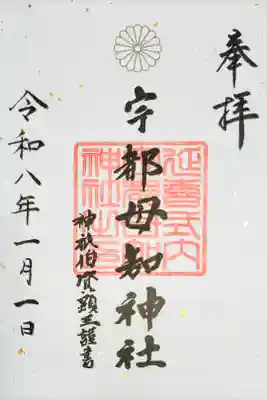 奉拝
宇都母知神社
神祇伯資顕王謹書
令和八年一月一日
延喜式内
神社之印